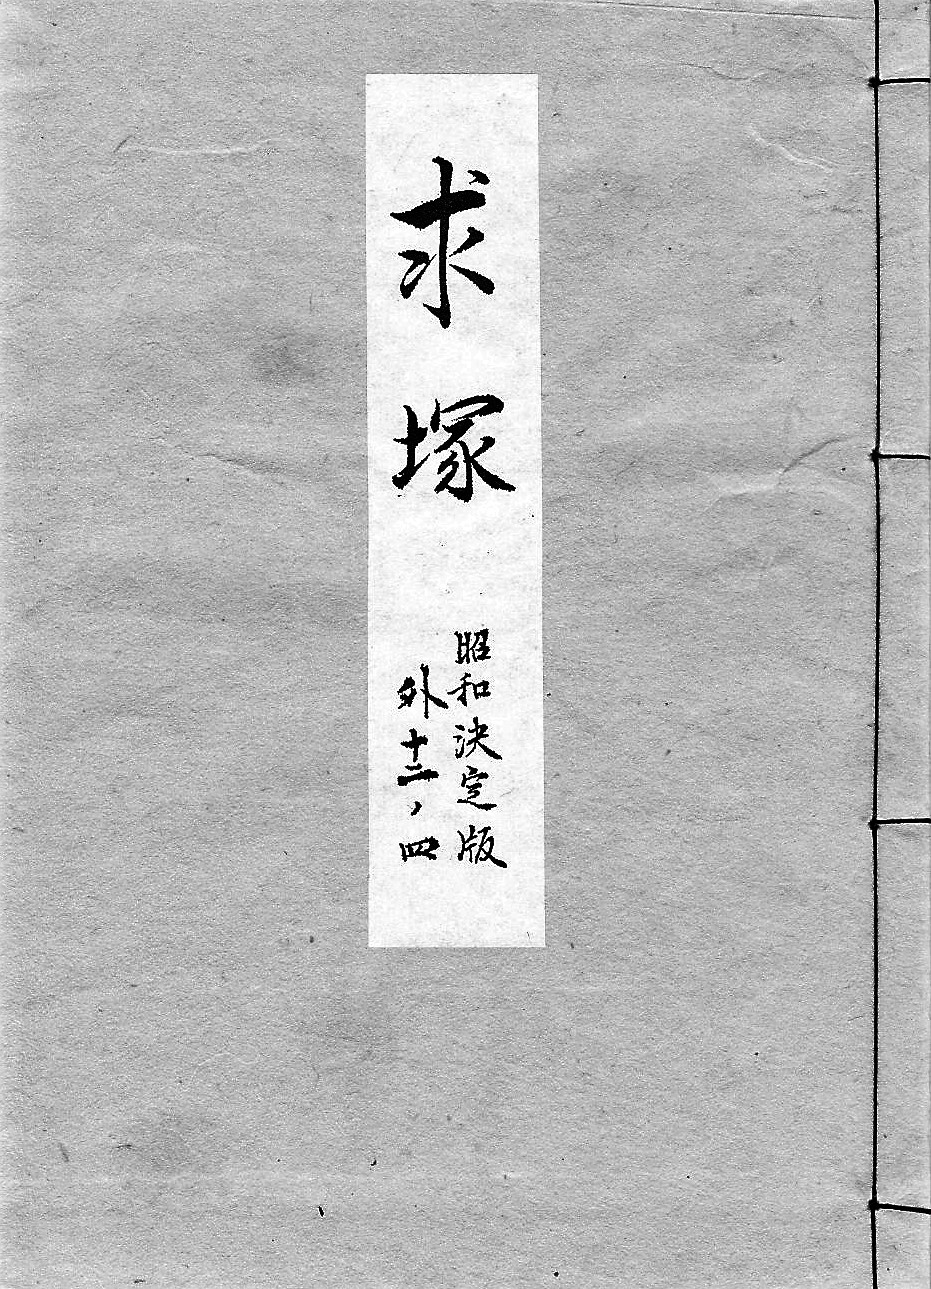 求塚
昭和決定版
外十二ノ四